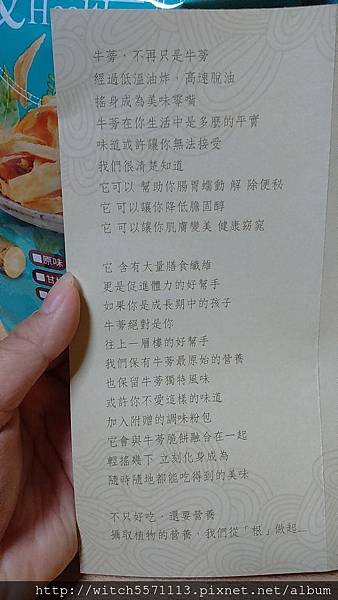 & Heal
原味
甘
牛蒡，不再只是牛蒡
經過低溫油炸，高速脫油
搖身成為美味零嘴
牛蒡在你生活中是多麼的平實
味道或許讓你無法接受
我們很清楚知道
它可以 幫助你腸胃蠕動 解 除便秘
它 可以讓你降低膽固醇
它 可以讓你肌膚變美 健康窈窕
它 含有大量膳食纖維
更是促進體力的好幫手
如果你是成長期中的孩子
牛蒡絕對是你
往上一層樓的好幫手
我們保有牛蒡最原始的營養
也保留牛蒡獨特風味
或許你不愛這樣的味道
加入附贈的調味粉包
它會與牛蒡脆餅融合在一起
輕搖幾下 立刻化身成為
隨時隨地都能吃得到的美味
不只好吃，還要營養
攝取植物的營養，我們從「根」做起...
http://witch5571113.pixnet.net/album